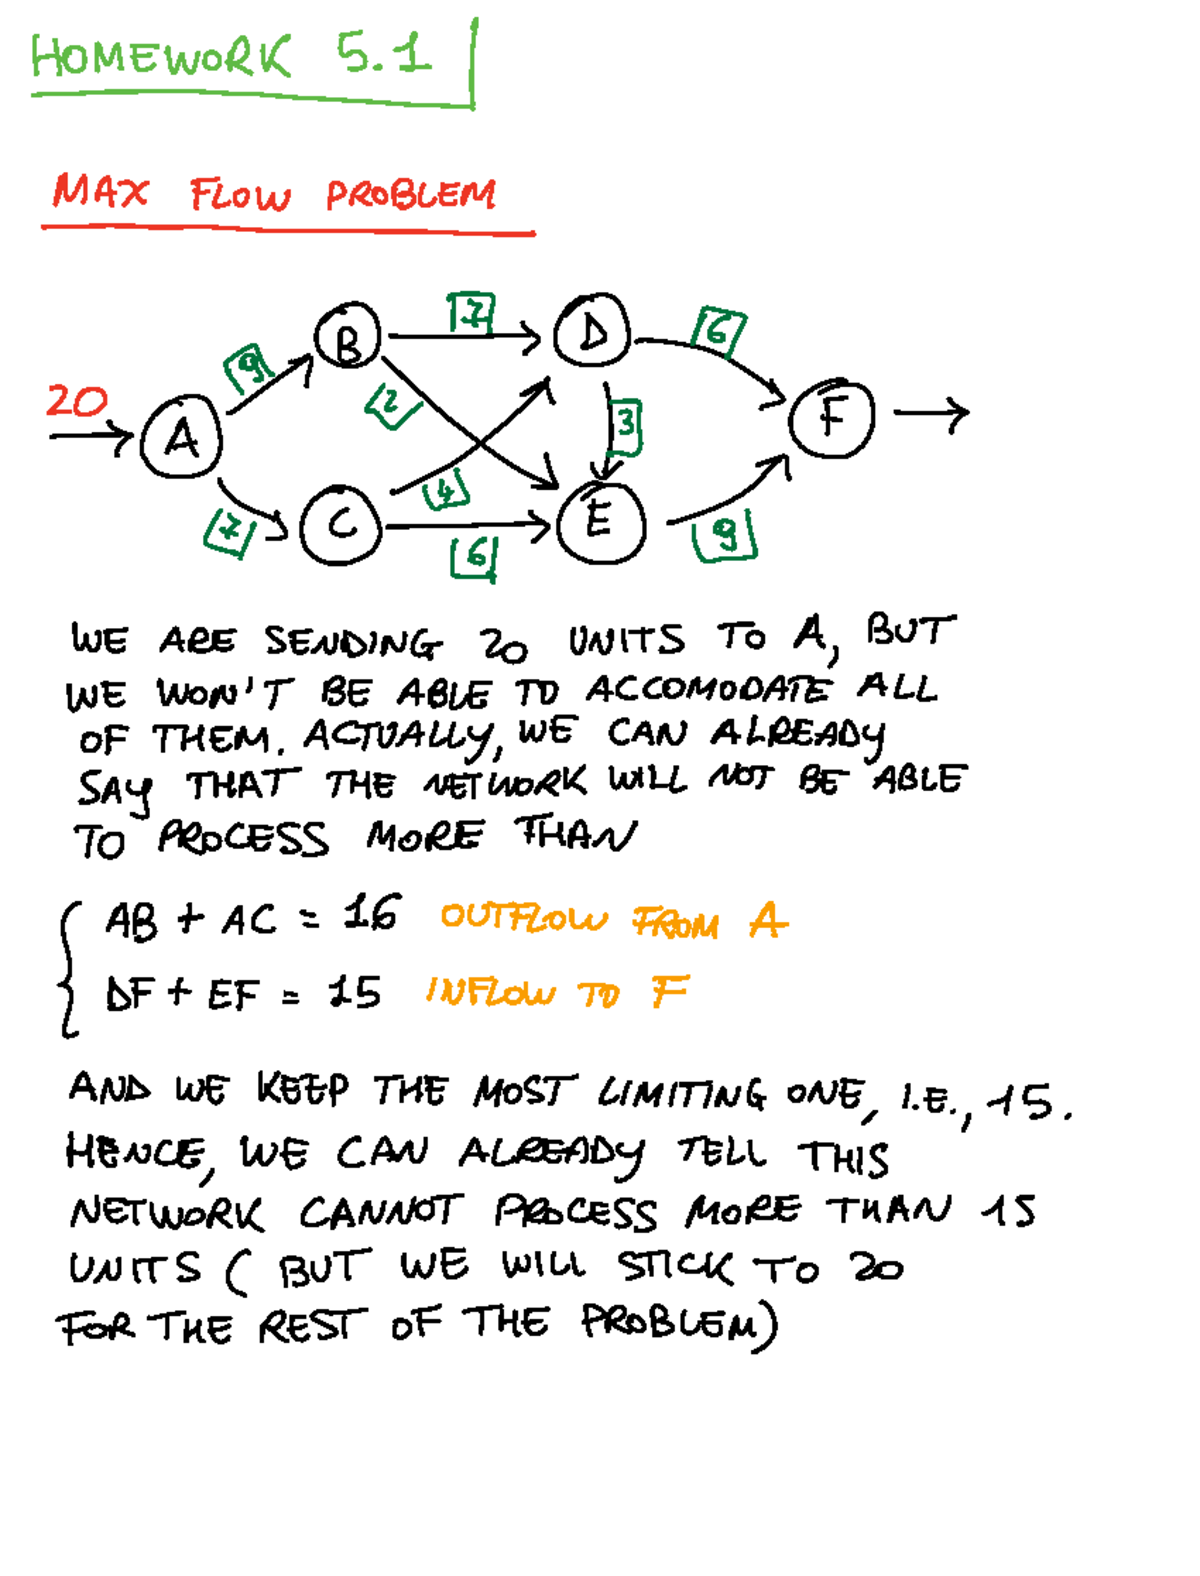 HOMEWORK 5.1
MAX FLOW PROBLEM
7
B
D
6
9
20
2
F
A
3
4
C
E
7
6
9
WE ARE SENDING 20 UNITS TO A, BUT
WE WON'T BE ABLE TO ACCOMODATE ALL
OF THEM. ACTUALLY, WE CAN ALREADY
SAY THAT THE NETWORK WILL NOT BE ABLE
TO PROCESS MORE THAN
AB + AC = 16 OUTFLOW FROM A
DF + EF = 15 INFLOW TO F
AND WE KEEP THE MOST LIMITING ONE, I.E., 15.
HENCE, WE CAN ALREADY TELL THIS
NETWORK CANNOT PROCESS MORE THAN 15
UNITS ( BUT WE WILL STICK TO 20
FOR THE REST OF THE PROBLEM)